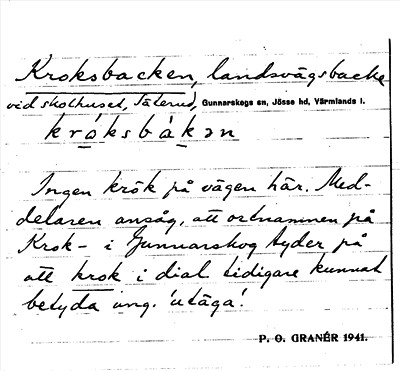 Kroksbacken, landsvägsbacke
vid skolhuset, Täterud, Gunnarskogs sn, Jösse hd, Värmlands l.
króksbàkǝn
Ingen krök på vägen här. Med-
delaren ansåg, att ortnamnen på
Krok- i Gunnarskog tyder på
att krok i dial tidigare kunnat
betyda ung. 'utäga'.
P. O. GRANÉR 1941.